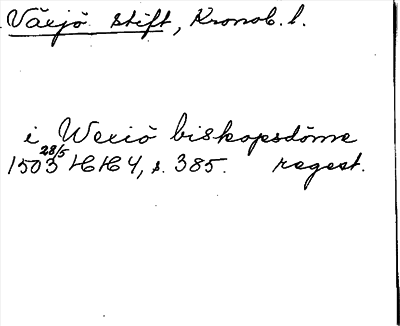 Växjö stift, Kronob. l.
i Wexiö biskopsdöme
1503 28/5 HH 4, s. 385. regest.